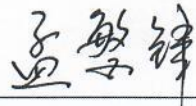 孟繁锋